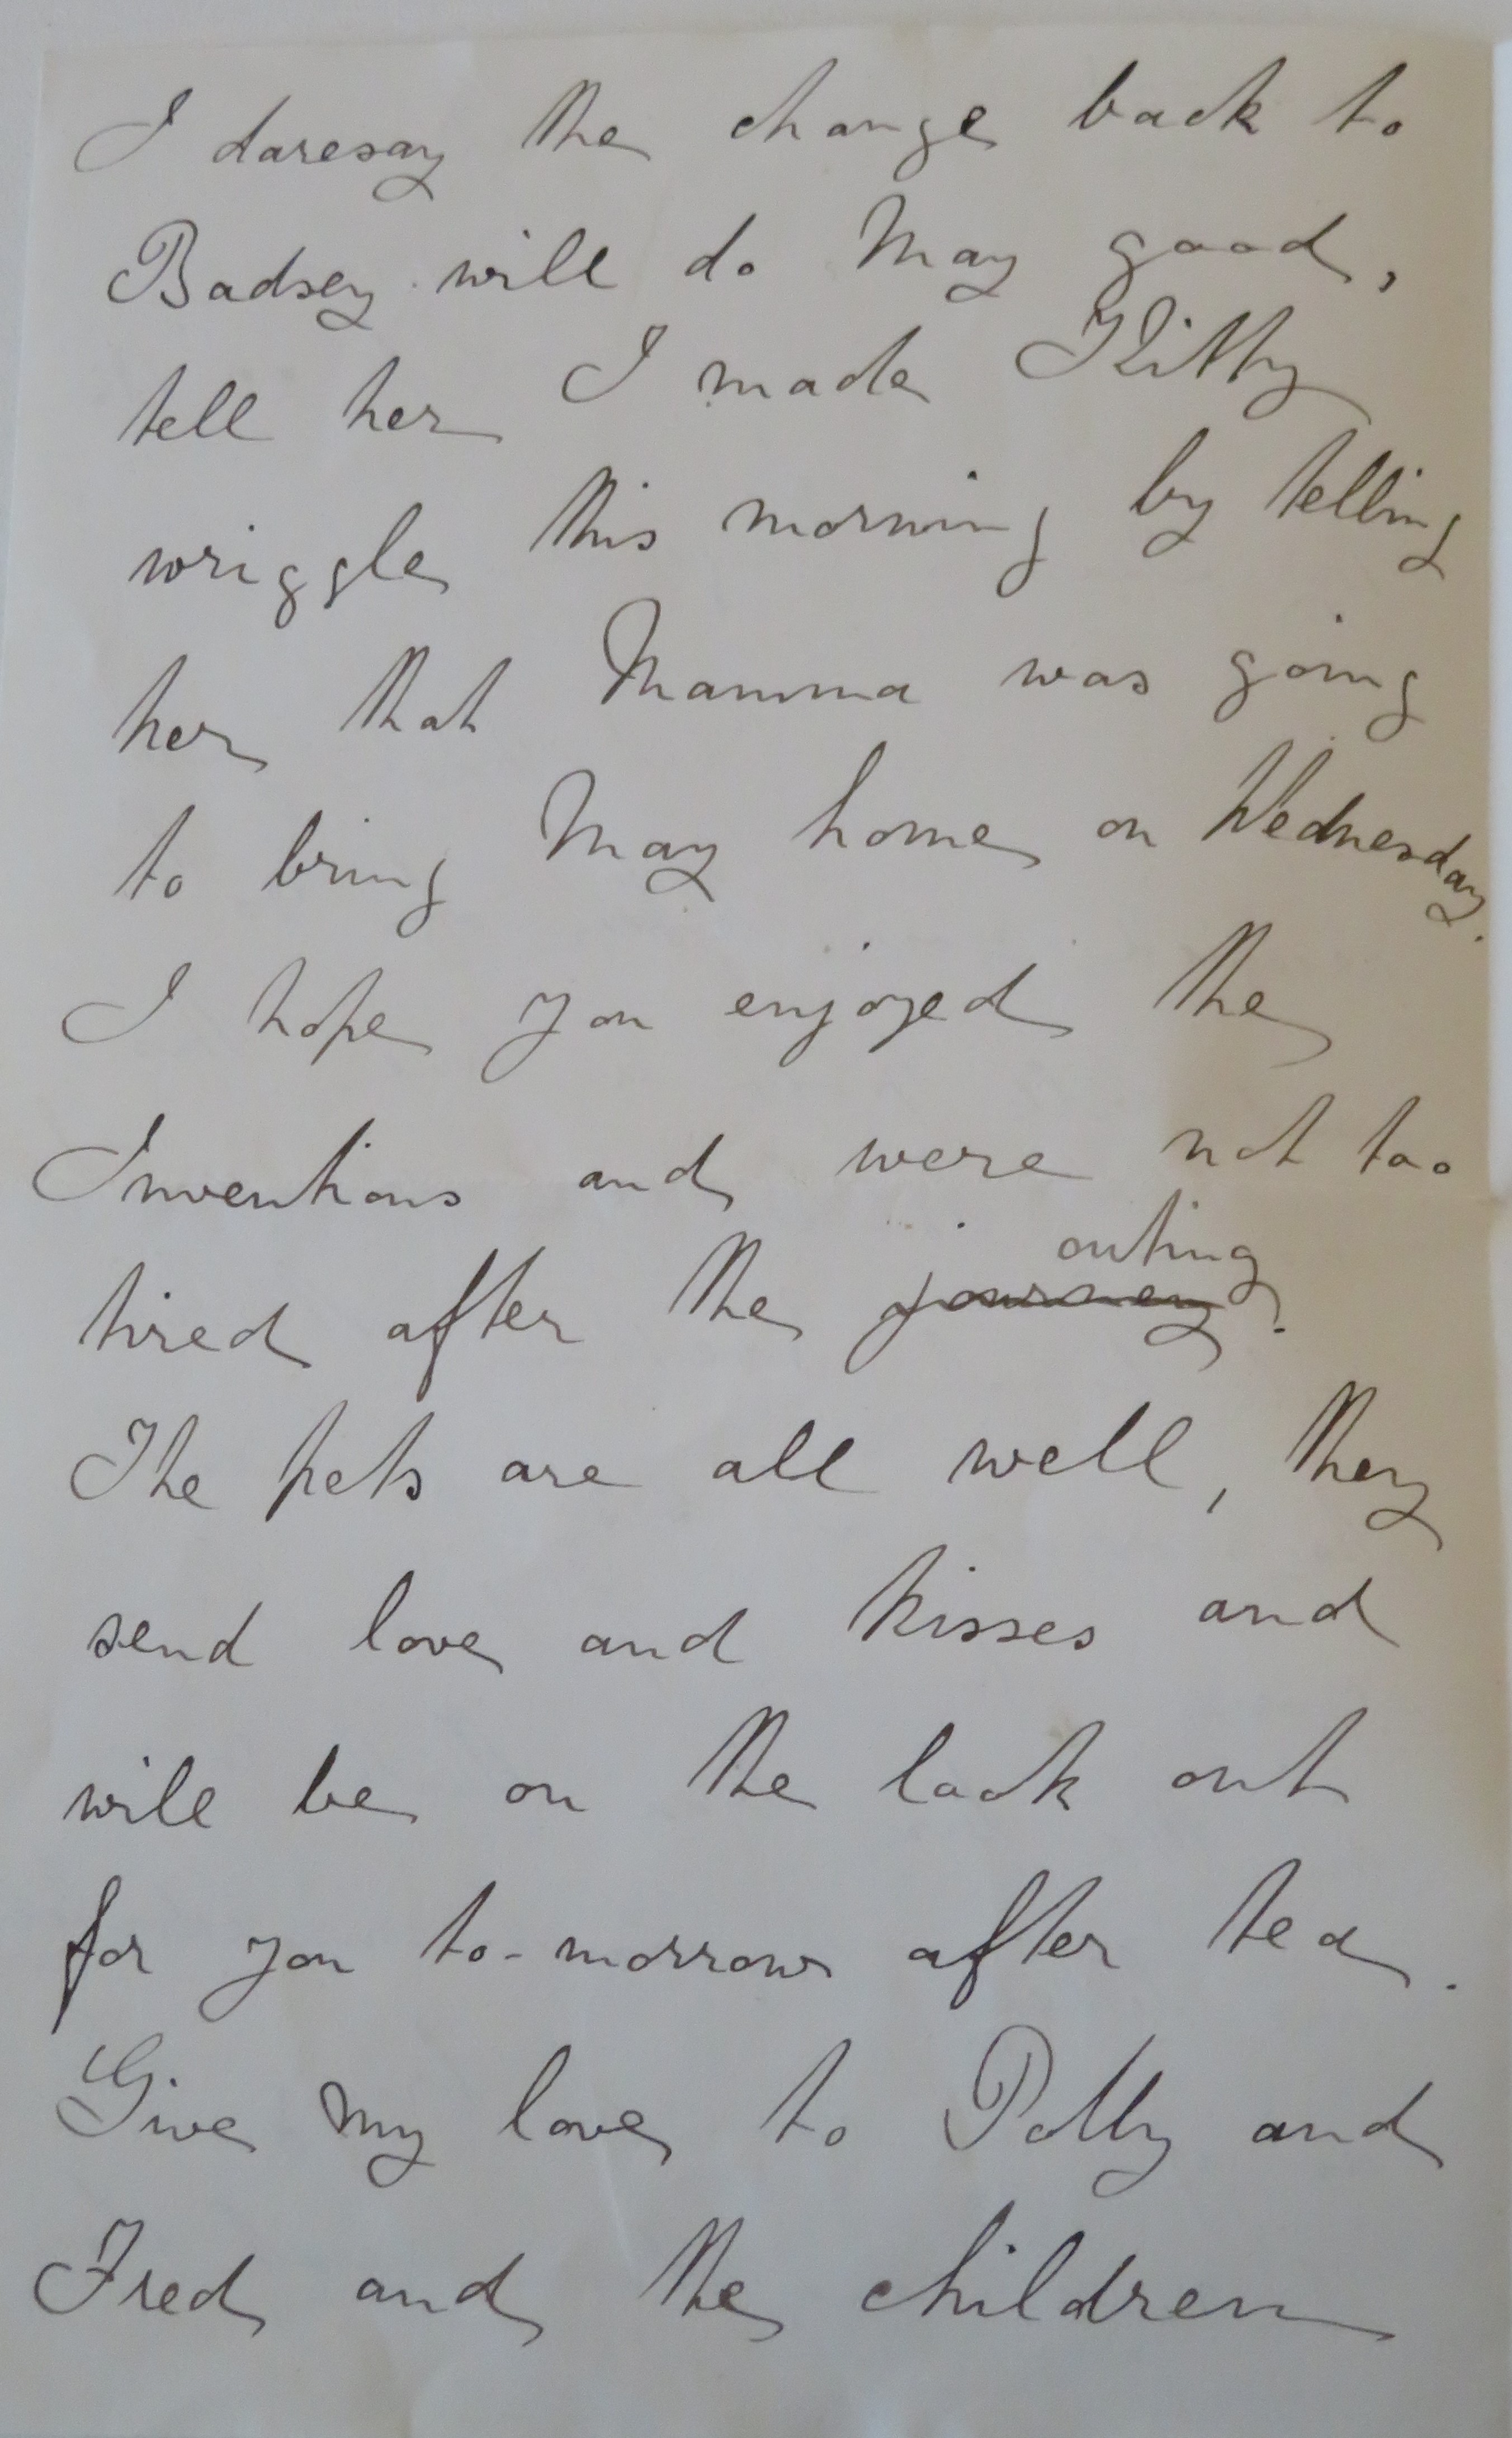 I daresay the change back to
Badsey will do May good,
tell her I made Kitty
wriggle this morning by telling
her that Mamma was going
to bring May home on Wednesday.
I hope you enjoyed the
Inventions and were not too
outing
tired after the journey.
The pets are all well, they
send love and kisses and
will be on the look out
for you to-morrow after tea.
Give my love to Polly and
Fred and the children